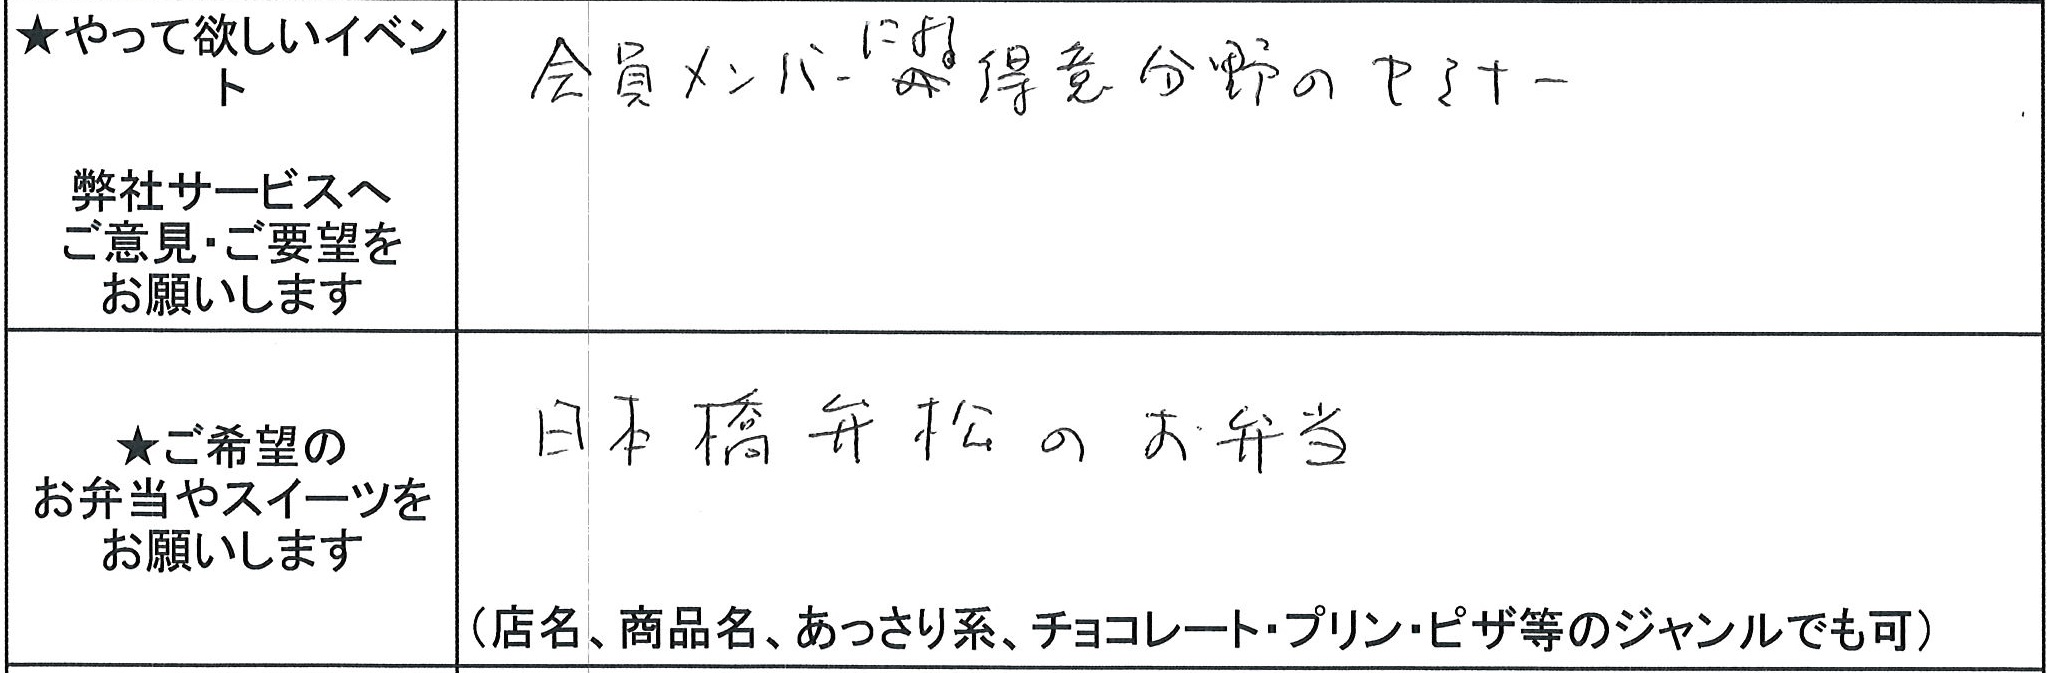 ★やって欲しいイベン
ト
弊社サービスへ
ご意見・ご要望を
お願いします
会員メンバーによる得意分野のセミナー
★ご希望の
お弁当やスイーツを
お願いします
日本橋弁松のお弁当
（店名、商品名、あっさり系、チョコレート・プリン・ピザ等のジャンルでも可）